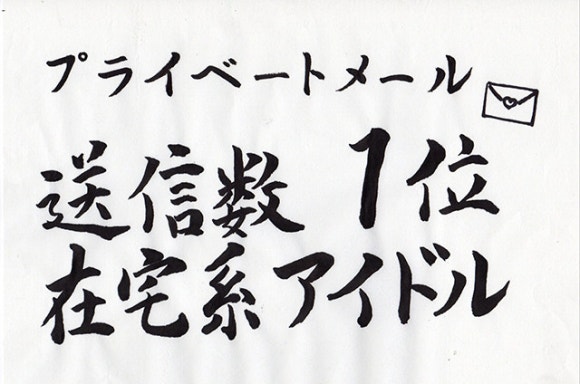 プライベートメール
送信数 1位
在宅系アイドル